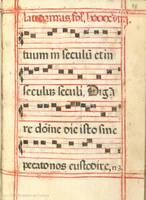 laudamus, fol. lxxxxviij.
tuum in seculũ et in
seculuz seculi, Digã
re dom̃e die isto sine
pecato nos custodire, n̄ s.